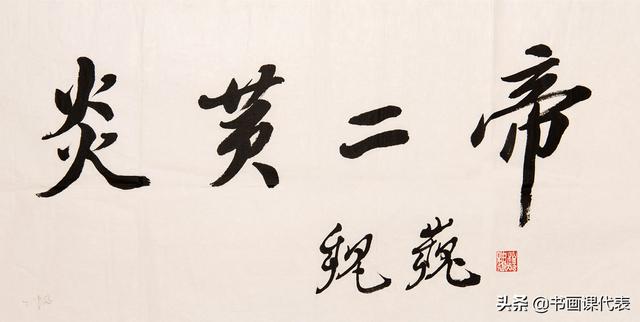 炎黄二帝
魏巍
头条 @书画课代表